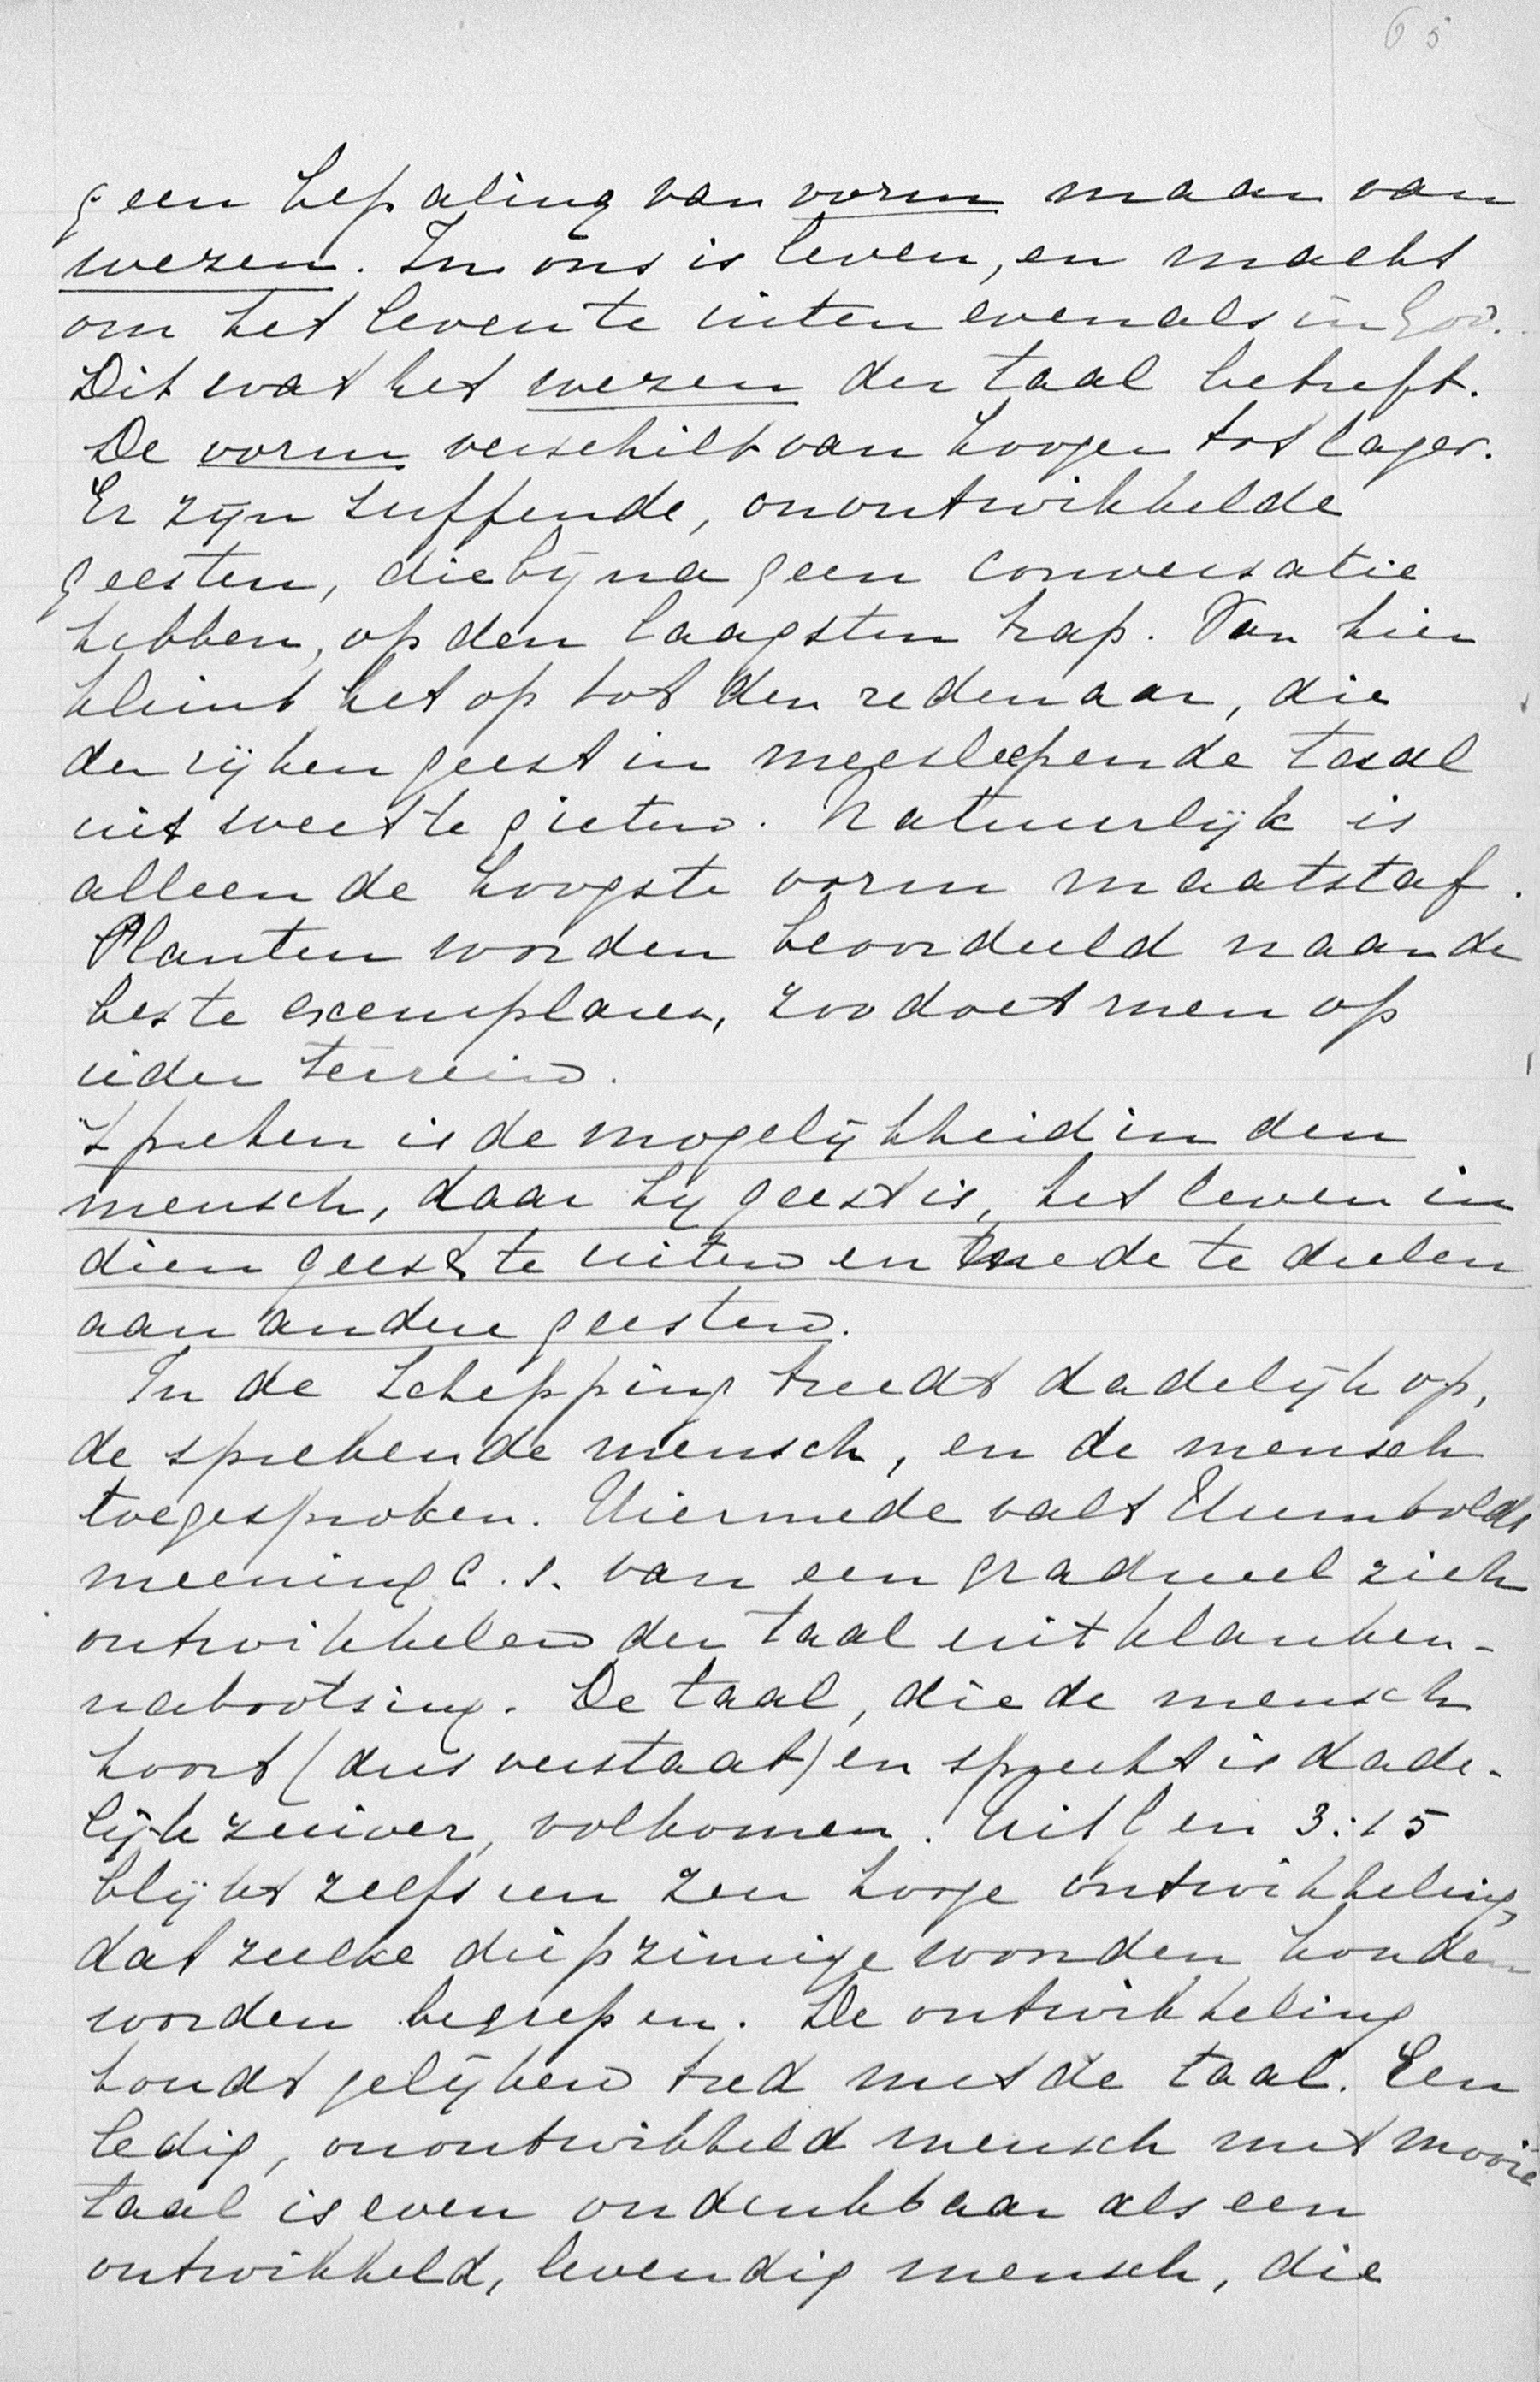 65
geen bepaling van vorm maar van
wezen. In ons is leven, en macht
om het leven te uiten evenals in God.
Dit wat het wezen der taal betreft.
De vorm verschilt van hooger tot lager.
Er zijn suffende, onontwikkelde
geesten, die bijna geen conversatie
hebben, op den laagsten trap. Van hier
klimt het op tot den redenaar, die
den rijken geest in meesleepende taal
uit weet te gieten. Natuurlijk is
alleen de hoogste vorm maatstaf.
Planten worden beoordeeld naar de
beste exemplaren, zoo doet men op
ieder terrein.
Spreken is de mogelijkheid in den
mensch, daar hij geest is, het leven in
dien geest te uiten en mede te deelen
aan andere geesten.
In de Schepping treedt dadelijk op,
de sprekende mensch, en de mensch
toegesproken. Hiermede valt Humboldt
meening c.s. van een gradueel zich
ontwikkelen der taal uit klanken-
nabootsing. De taal, die de mensch
hoort (dus verstaat) en spreekt is dade-
lijk zuiver, volkomen. Uit Gen 3:15
blijkt zelfs een zeer hooge ontwikkeling,
dat zulke diepzinnige woorden konden
worden begrepen. De ontwikkeling
houdt gelijken tred met de taal. Een
ledig, onontwikkeld mensch met mooie
taal is even ondenkbaar als een
ontwikkeld, levendig mensch, die